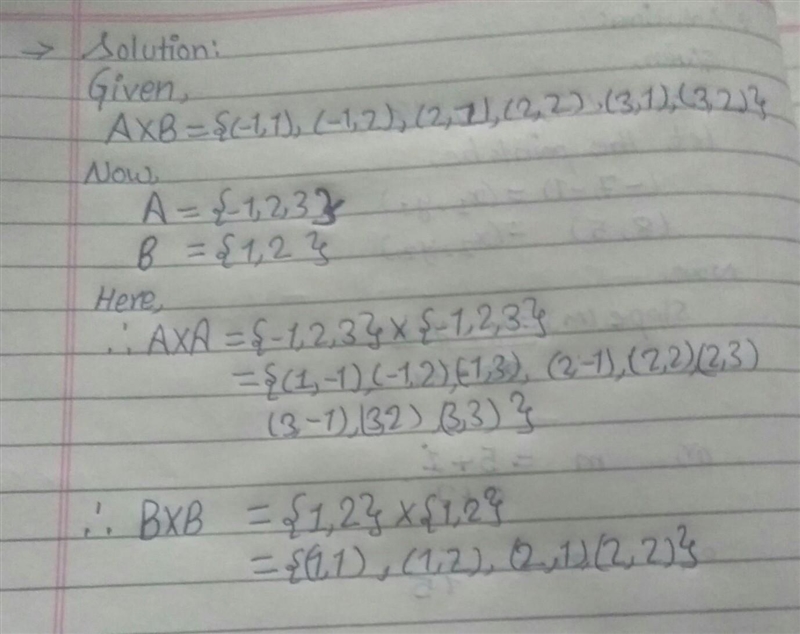 → Solution:
Given,
A×B = {(-1,1), (-1,2), (2,1), (2,2), (3,1), (3,2)}
Now,
A = {-1,2,3}
B = {1,2}
Here,
∴ A×A = {-1,2,3} × {-1,2,3}
= {(1,-1), (-1,2), (-1,3), (2-1), (2,2) (2,3)
(3-1), (32) (3,3)}
∴ B×B = {1,2} × {1,2}
= {(1,1), (1,2), (2,1) (2,2)}